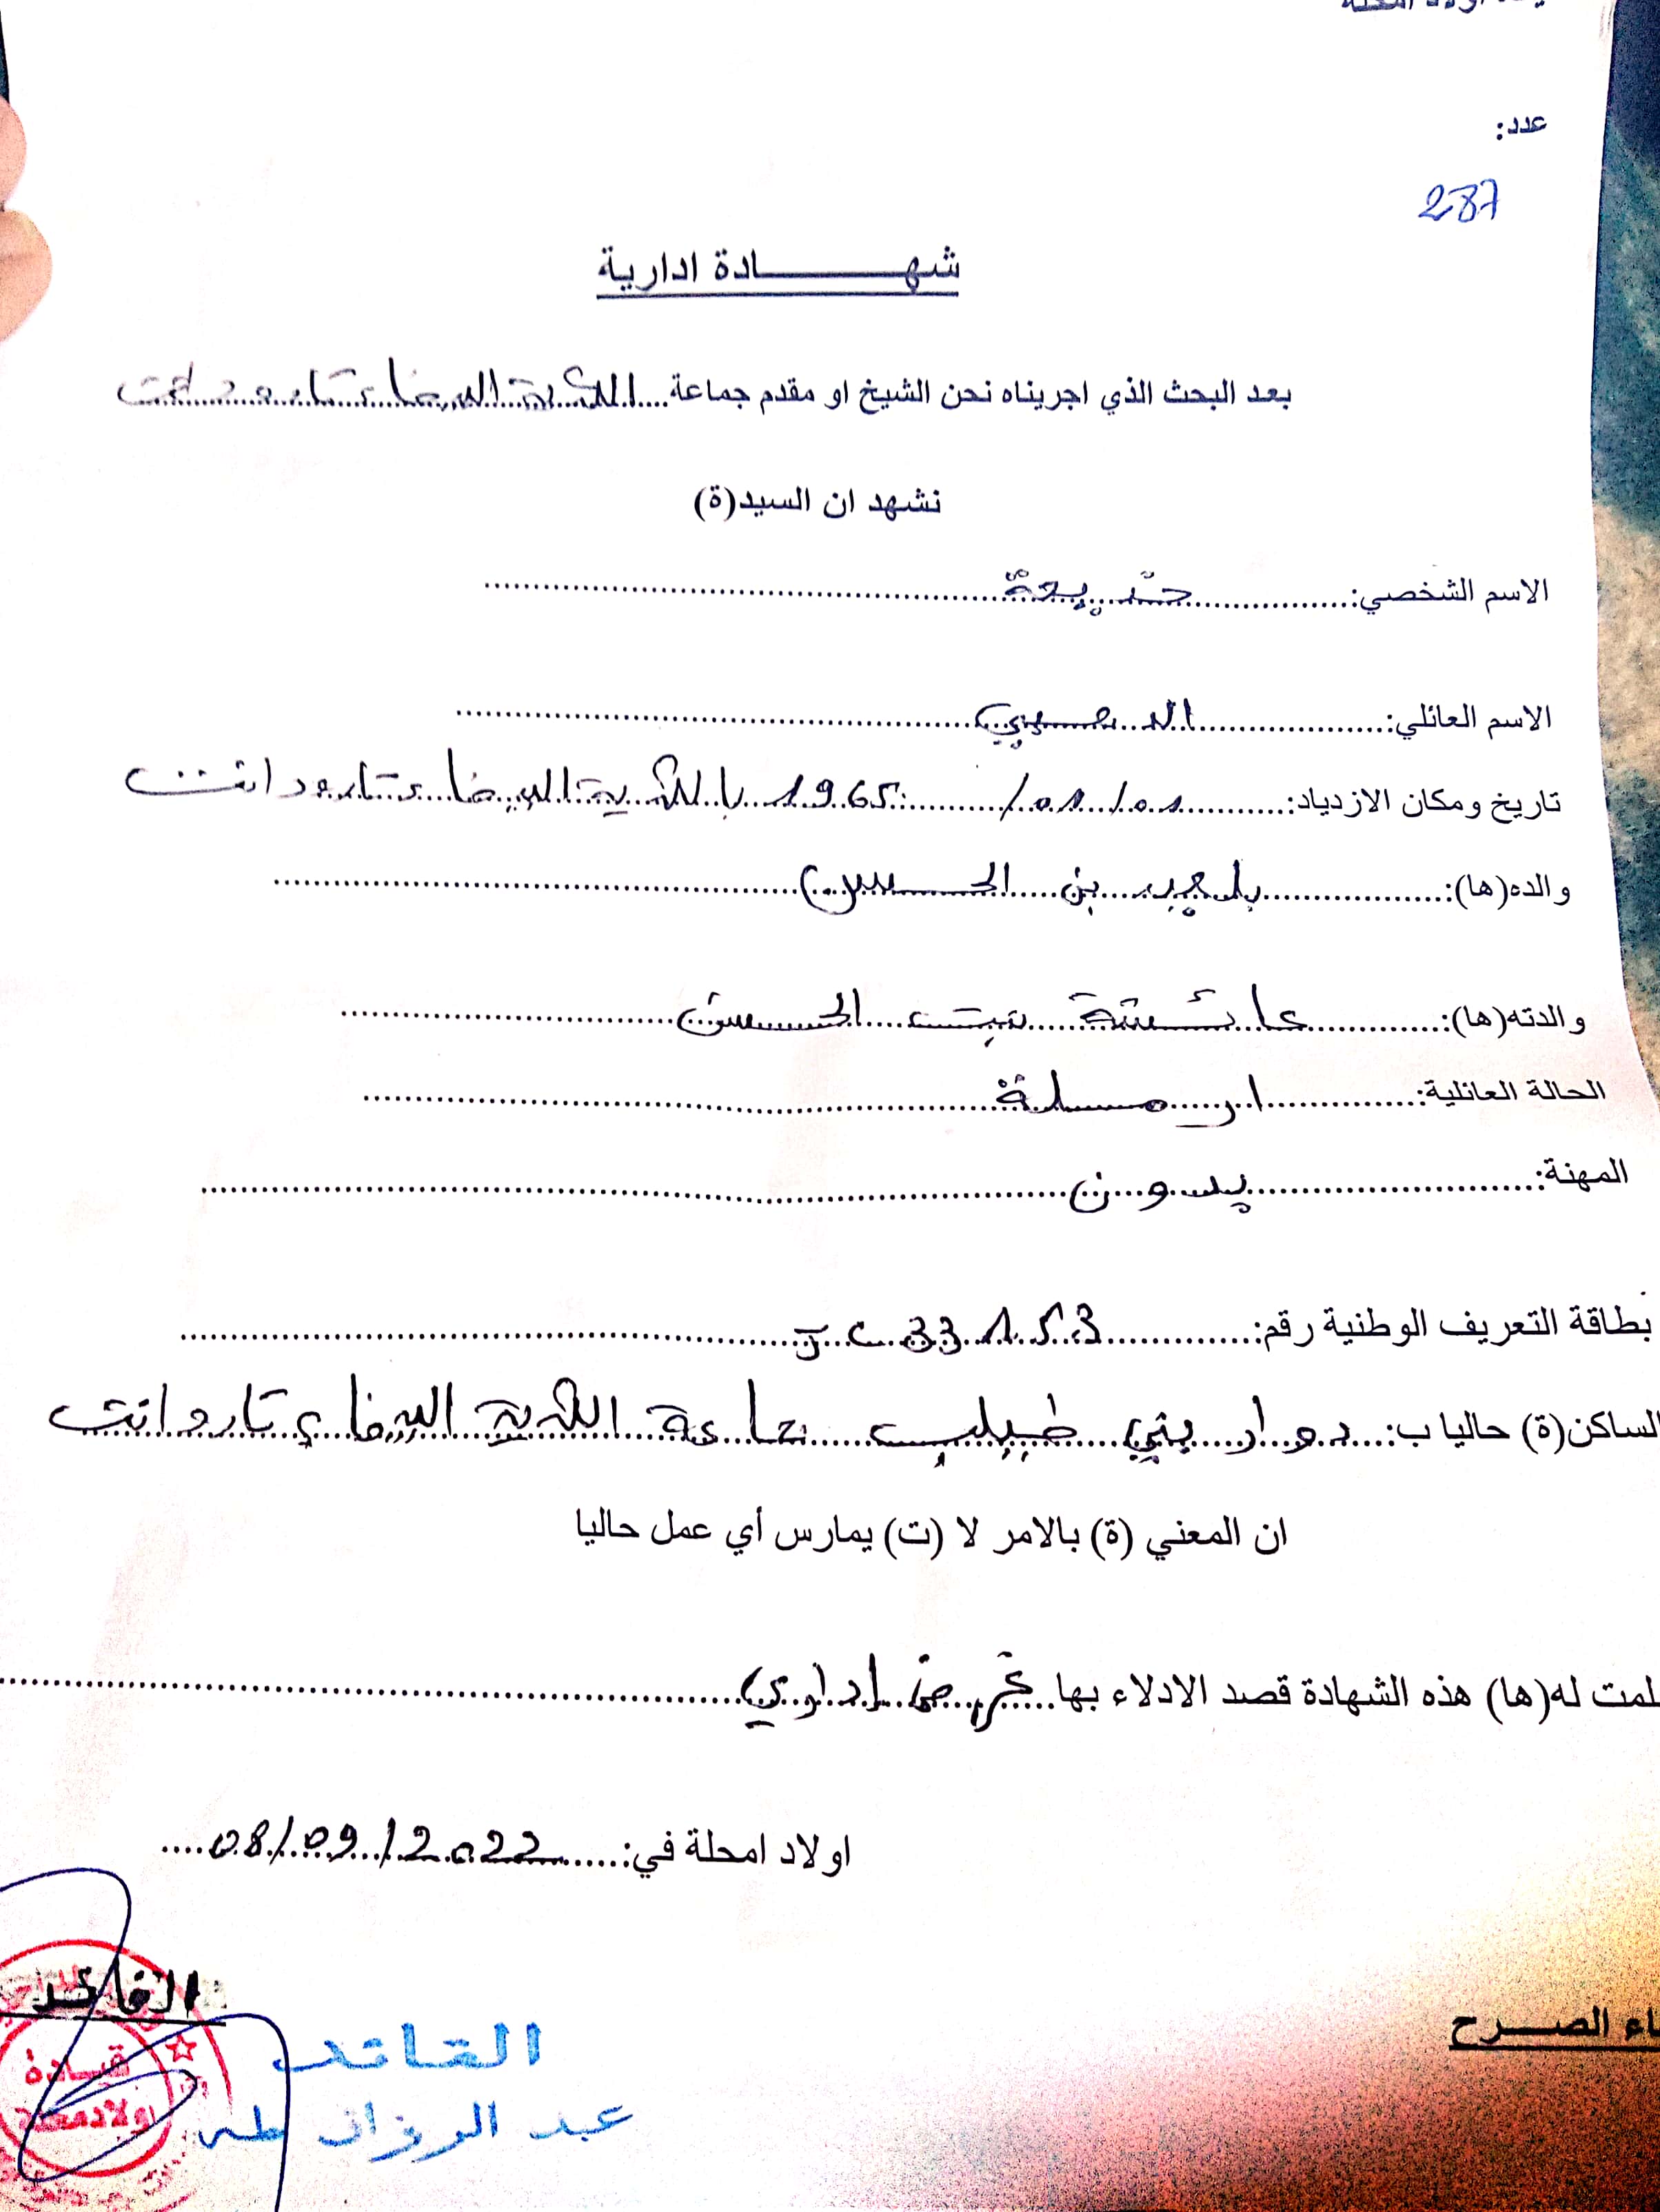 اولاد امحلة
عدد:
287
شهادة ادارية
بعد البحث الذي اجريناه نحن الشيخ او مقدم جماعة الكدية البيضاء تارودانت
نشهد ان السيد(ة)
الاسم الشخصي: خديجة
الاسم العائلي:
تاريخ ومكان الازدياد: 01/01/1965 بالكدية البيضاء تارودانت
والده(ها): بلعيد بن الحسين
والدته(ها): عائشة بنت الحسن
الحالة العائلية: ارملة
المهنة: بدون
بطاقة التعريف الوطنية رقم: JC 33153
الساكن(ة) حاليا ب: دوار بني طبيب جماعة الكدية البيضاء تارودانت
ان المعني (ة) بالامر لا (ت) يمارس أي عمل حاليا
لمت له(ها) هذه الشهادة قصد الادلاء بها غرض اداري
اولاد امحلة في: 08/09/2022
القائد
اء الصرح
قيادة
القائد
عبد الرزاق طه